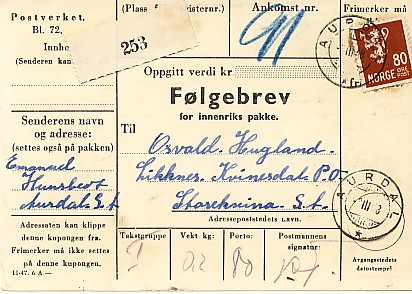 Postverket.
Bl. 72.
Innho
(Senderen kan
(Plass f
isternr.)
253
Ankomst nr.
91
Frimerker m
AURDAL
80
NORGE
POST
Oppgitt verdi kr
Følgebrev
for innenriks pakke.
Senderens navn
og adresse:
(settes også på pakken)
Emanuel
Aurdal St
Til
Osvald Hugland
Likknes Kvinesdal P.O.
Storekvina. St.
Adressepoststedets navn.
AURDAL
III 8
Adressaten kan klippe
denne kupongen fra.
Frimerker må ikke settes
på denne kupongen.
11-47. 6 A —
Takstgruppe
I
Vekt kg:
0,2
Porto:
80
Postmannens
signatur:
Avgangsstedets
datostempel